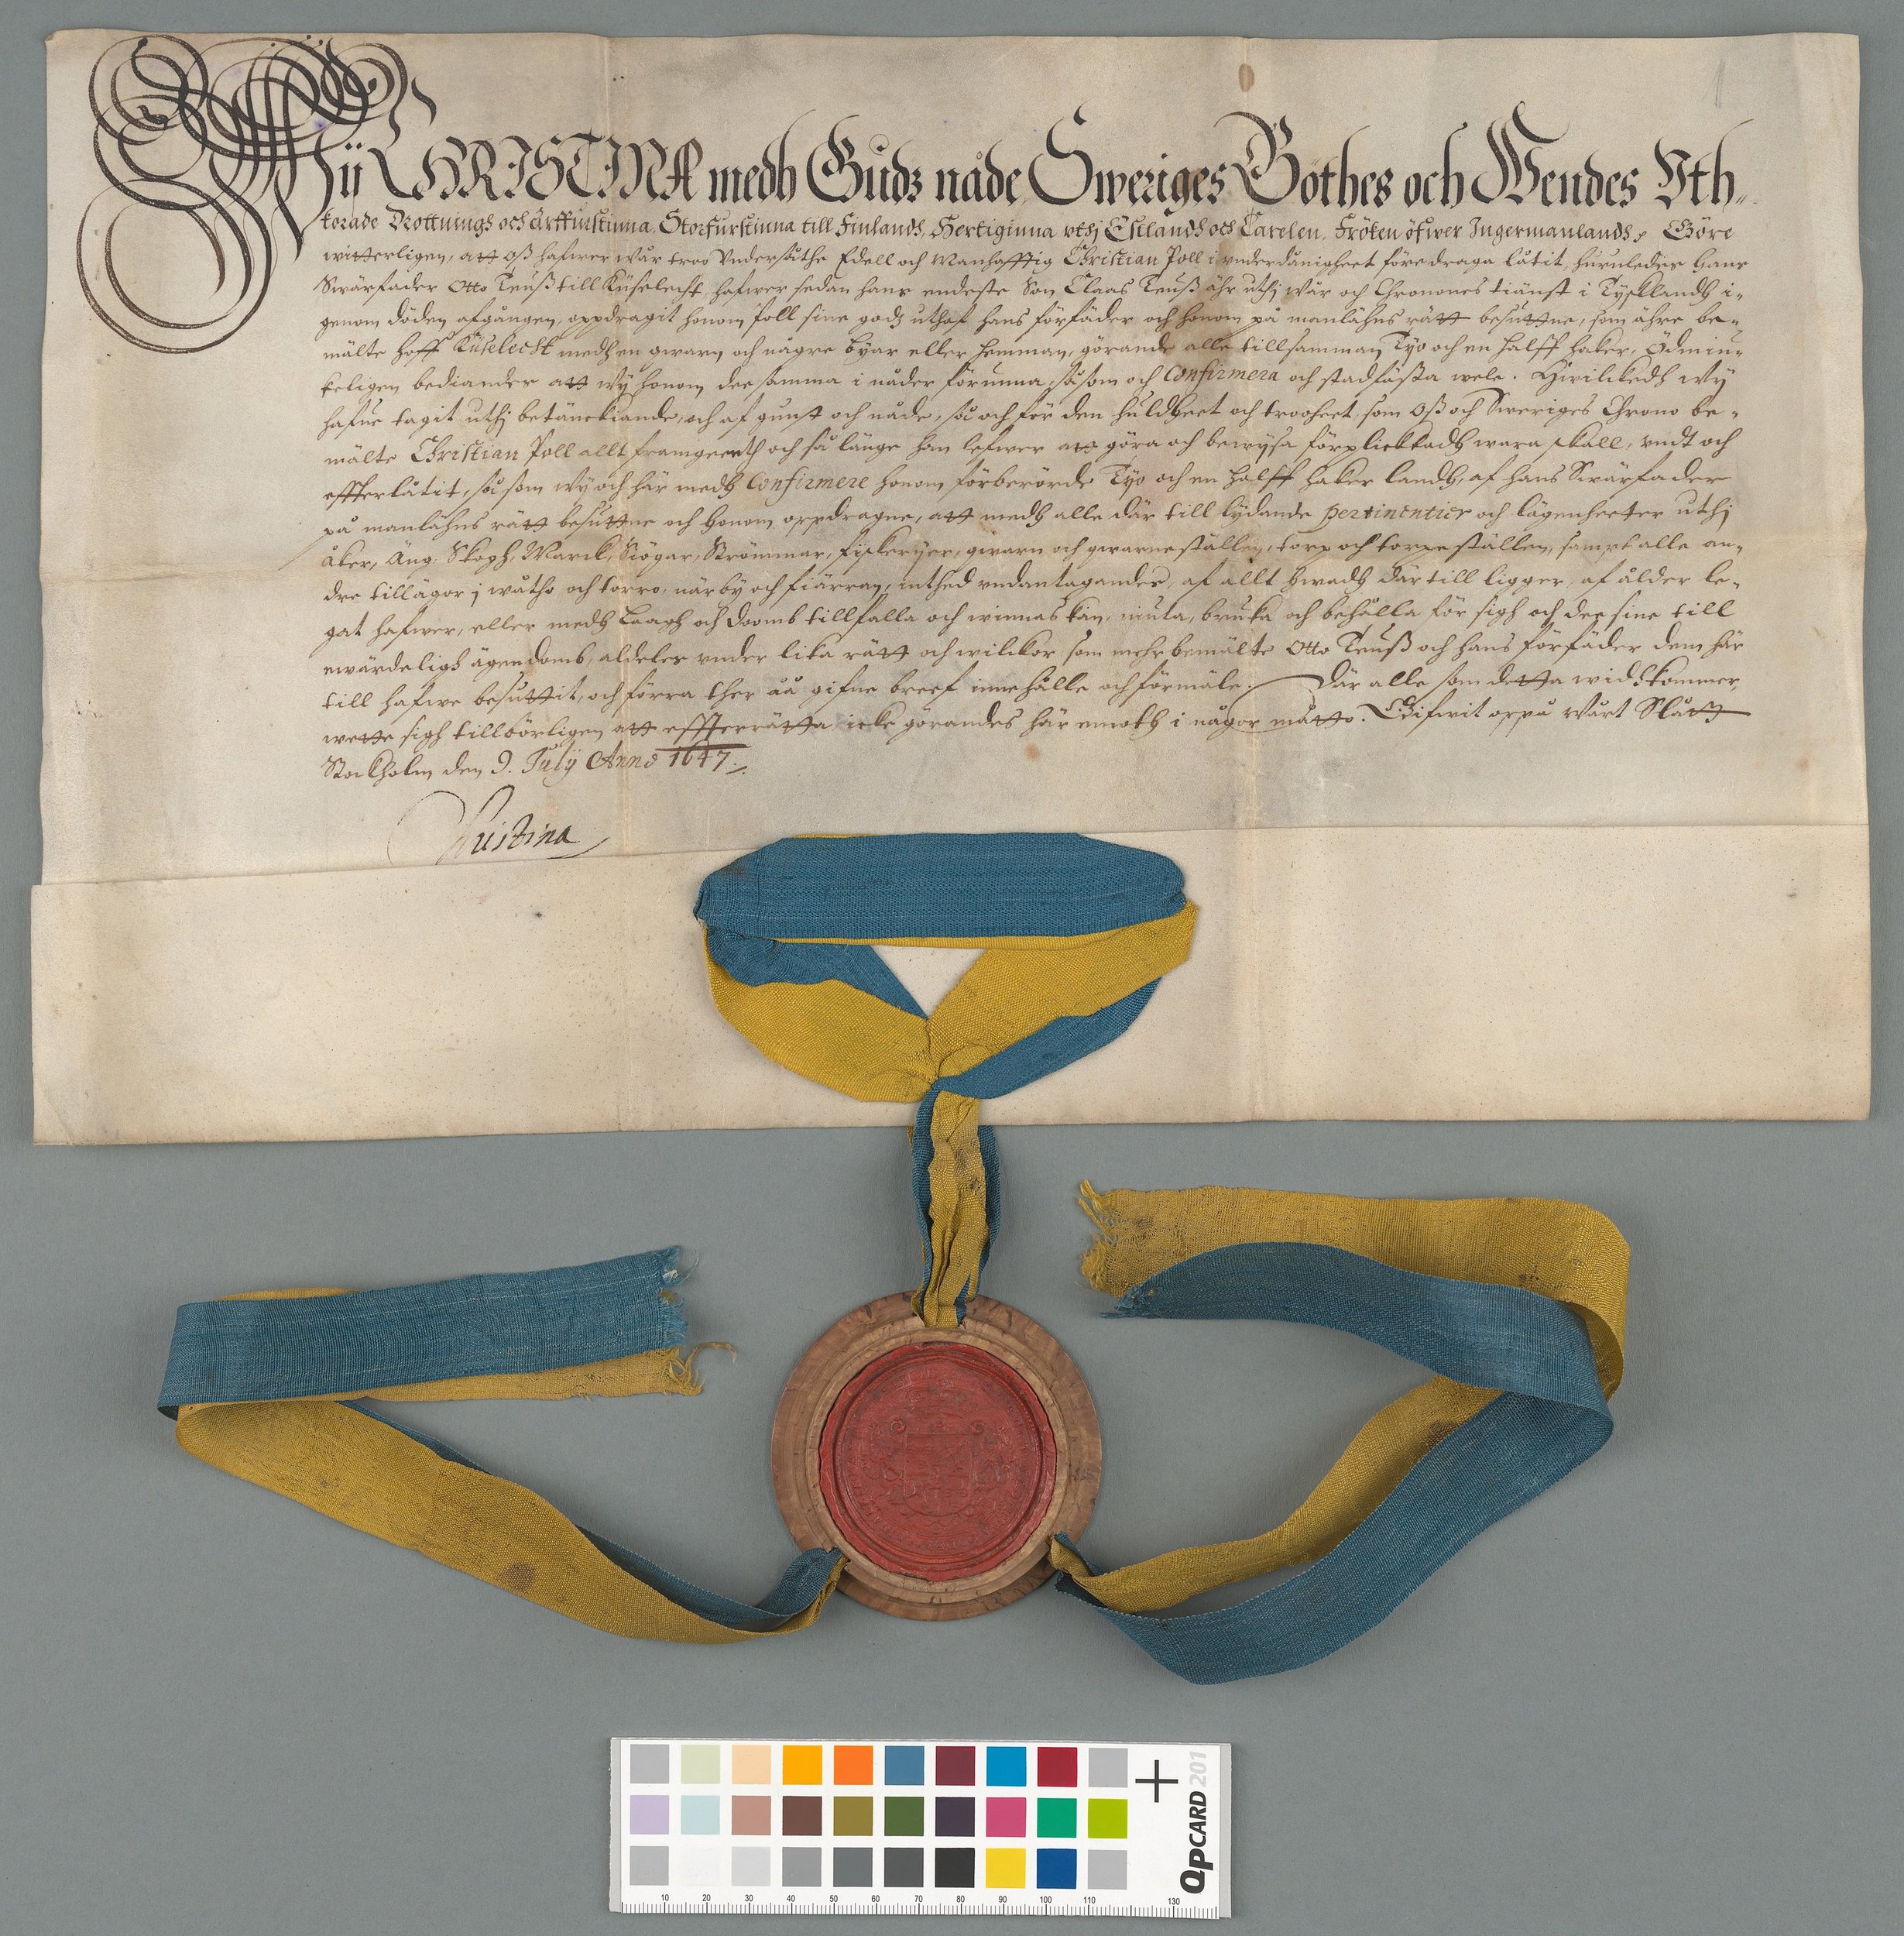 Wij CHRISTINA medh Gudz nåde Sweriges Göthes och Wendes Uth-
korade Drottningh och Arffurstinna, Storfurstinna till Finlandh, Hertiginna uthj Estlandh och Carelen, Fröken öfwer Ingermanlandh, Göre
witterligen, att oß hafwer wår troo Undersåthe Edell och Manhafftig Christian Poll i underdånigheet föredraga låtit, huruledes hans
Swärfader Otto Teuß till Küselecht, hafwer sedan hans endeste Son Claas Teuß ähr uthj wår och Chronones tiänst i Tysklandh i-
genom döden afgången, oppdragit honom Poll sine godz uthaf hans förfäder och honom på manlähns rätt besuttne, som ähre be-
mälte hoff Küselecht medh en qwarn och någre byar eller hemman, görande alle tillsamman Tyo och en halff haker, Ödmiu-
keligen bediandes att wij honom dee samma i nåder förunna, så som och Confirmera och stadfästa wele. Hwilkedh Wij
hafue tagit uthj betänckiande, och af gunst och nåde, så och för den huldheet och trooheet, som Oß och Sweriges Chrono be-
mälte Christian Poll allt framgeenth och så länge han lefwer att göra och bewysa förplicktadh wara skall, undt och
effterlåtit, så som Wij och här medh Confirmere honom förberörde Tyo och en halff haker landh, af hans Swärfader
på manlähns rätt besuttne och honom oppdragne, att medh alle där till lydande pertinentier och lägenheeter uthj
åker, Äng, Skogh, Marck, Siögar, Strömmar, fiskeryer, qwarn och qwarneställen, torp och torpeställen, sampt alle an-
dre tillägor j wåtho och torro, närby och fiärran, inthed undantagandes, af allt hwadh därtill ligger, af ålder le-
gat hafwer, eller medh Laagh och Doomb tillfalla och winnas kan, niuta, bruka och behålla för sigh och dee sine till
ewärdeligh ägendomb, aldeles under lika rätt och wilckor som mehrbemälte Otto Teuß och hans förfäder dem här
till hafwe besuttit, och förra ther åå gifne breef innehålle och förmäle. Där alle som detta widhkommer,
wette sigh tillbörligen att effterrätta, icke görandes här emoth i någor måtto. Gifwit oppå Wårt Slått
Stockholm den 9. Julij Anno 1647.
Christina
QPCARD 201
10 20 30 40 50 60 70 80 90 100 110 130